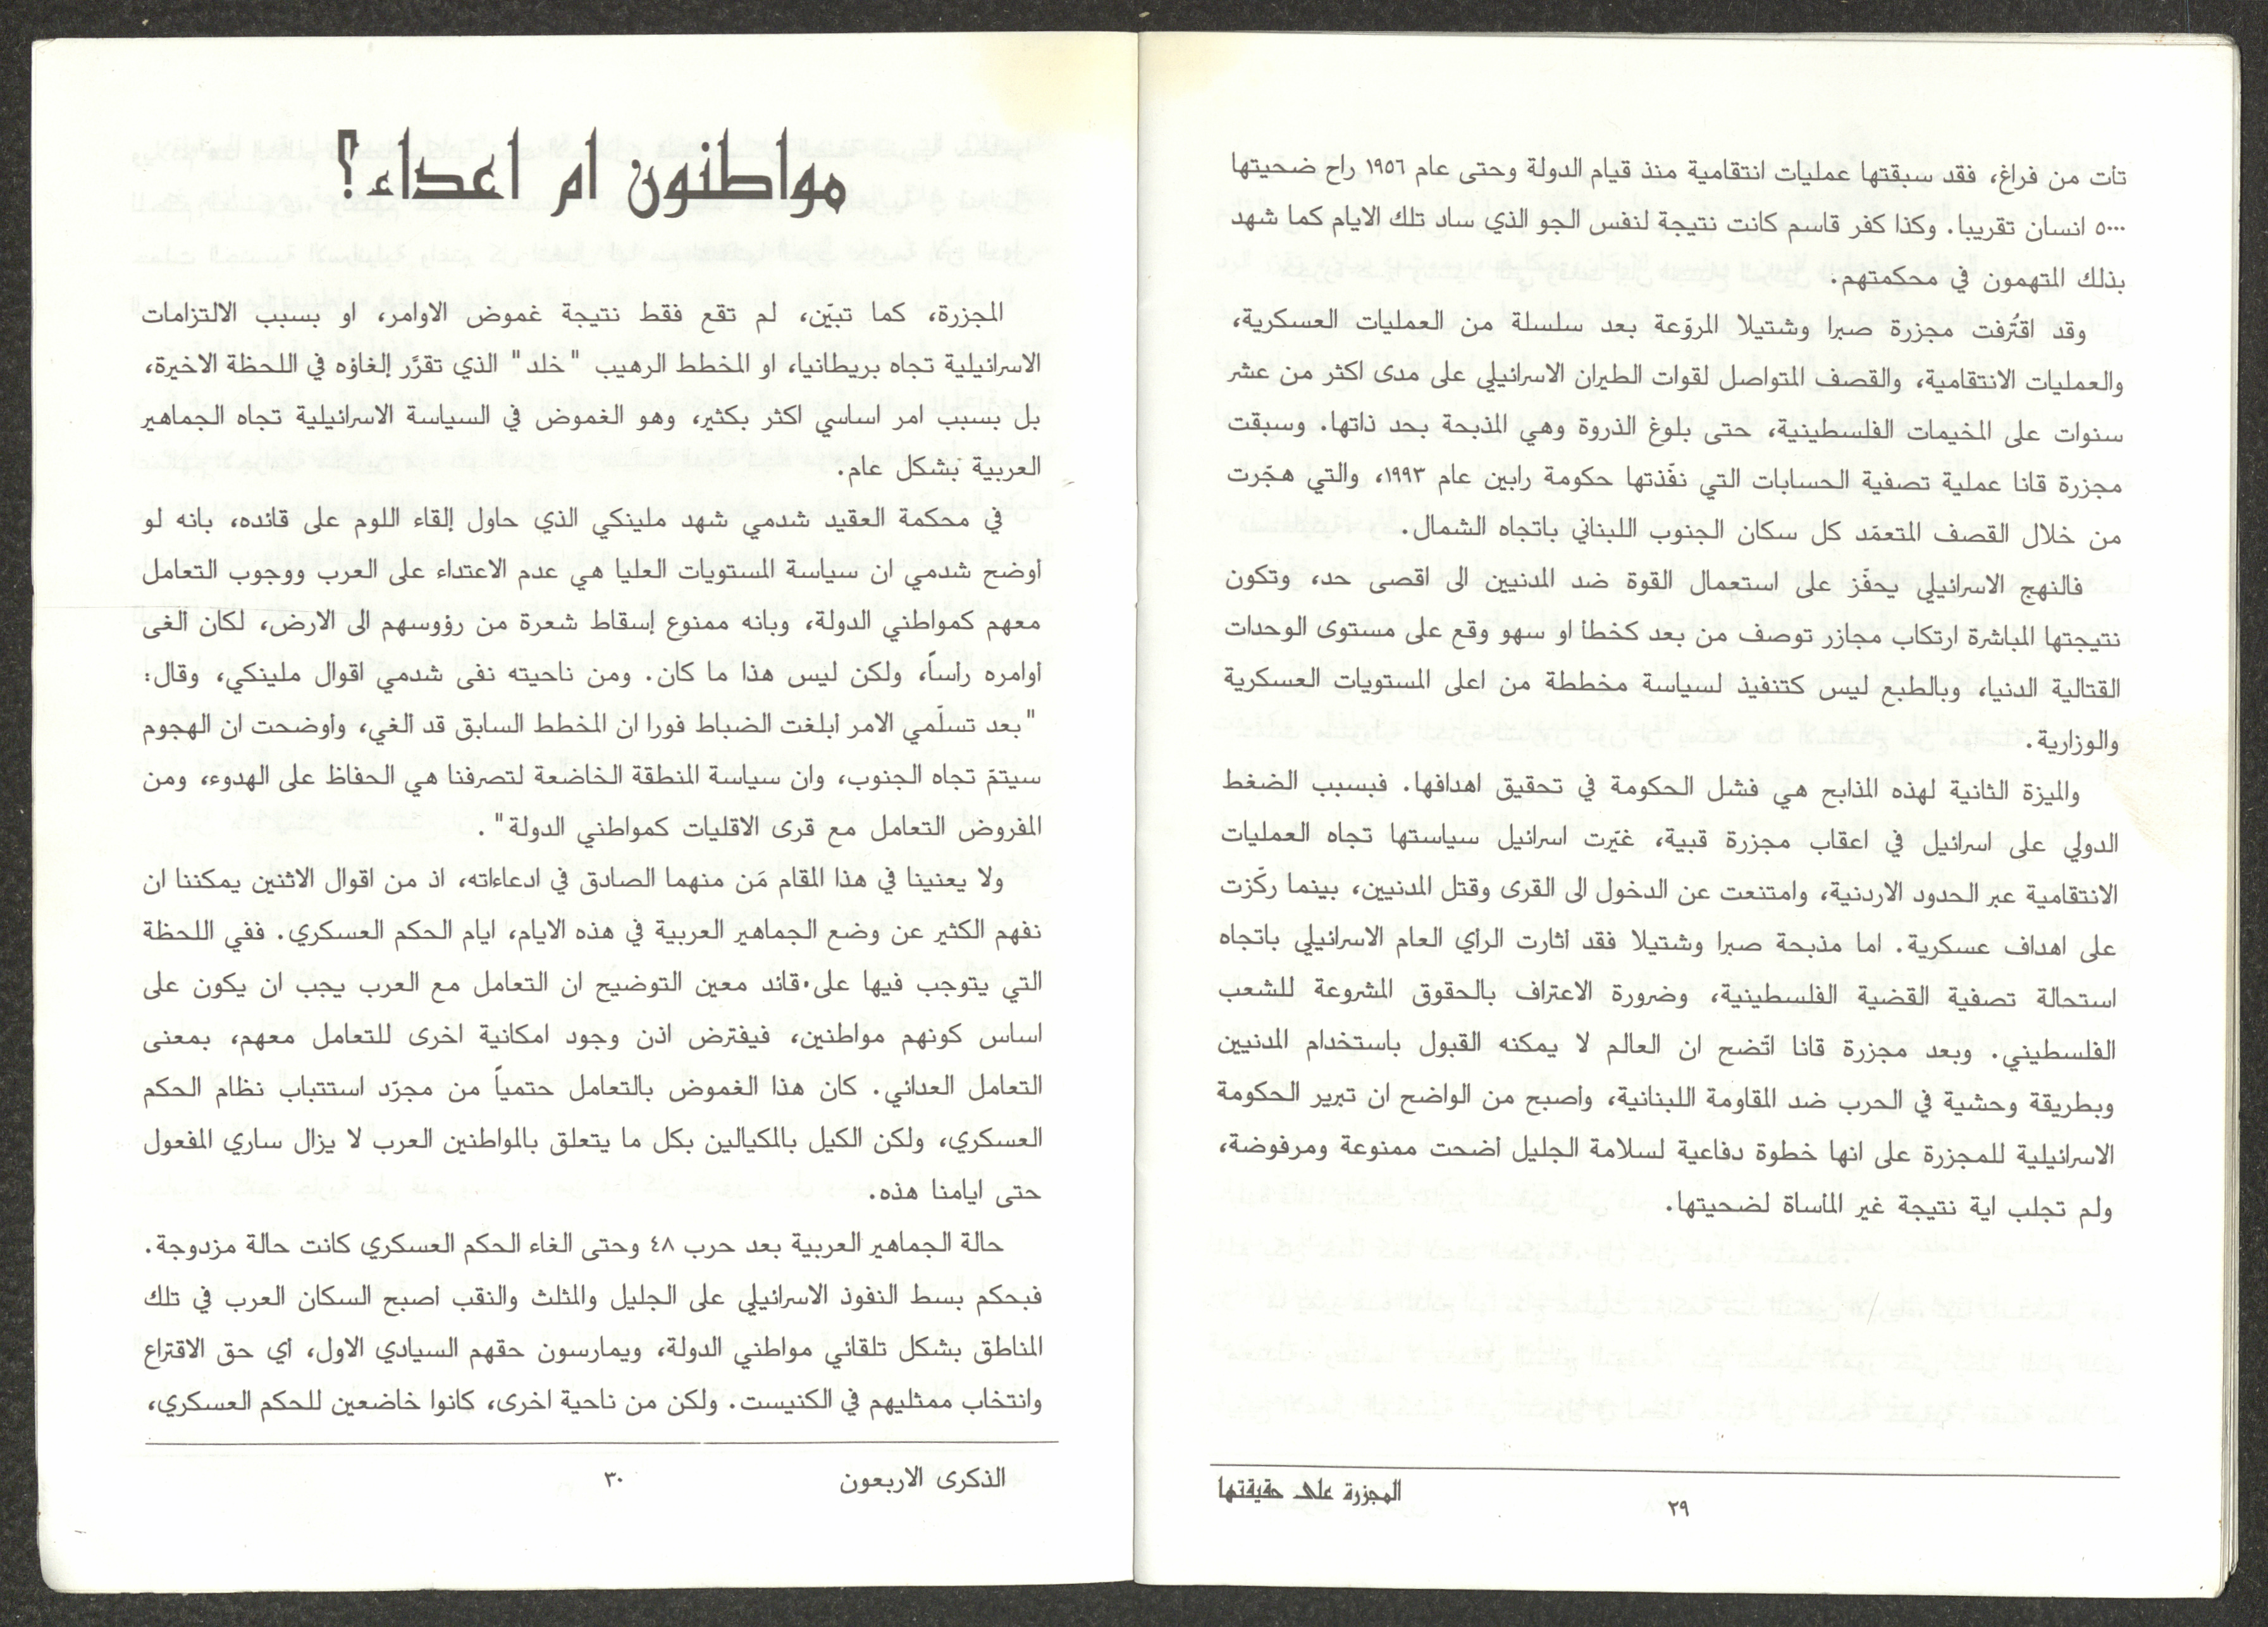 تأت من فراغ، فقد سبقتها عمليات انتقامية منذ قيام الدولة وحتى عام ١٩٥٦ راح ضحيتها
٥٠٠٠ انسان تقريبا. وكذا كفر قاسم كانت نتيجة لنفس الجو الذي ساد تلك الايام كما شهد
بذلك المتهمون في محكمتهم.
وقد اقتُرفت مجزرة صبرا وشتيلا المروّعة بعد سلسلة من العمليات العسكرية،
والعمليات الانتقامية، والقصف المتواصل لقوات الطيران الاسرائيلي على مدى اكثر من عشر
سنوات على المخيمات الفلسطينية، حتى بلوغ الذروة وهي المذبحة بحد ذاتها. وسبقت
مجزرة قانا عملية تصفية الحسابات التي نفّذتها حكومة رابين عام ١٩٩٣، والتي هجّرت
من خلال القصف المتعمّد كل سكان الجنوب اللبناني باتجاه الشمال.
فالنهج الاسرائيلي يحفّز على استعمال القوة ضد المدنيين الى اقصى حد، وتكون
نتيجتها المباشرة ارتكاب مجازر توصف من بعد كخطأ او سهو وقع على مستوى الوحدات
القتالية الدنيا، وبالطبع ليس كتنفيذ لسياسة مخططة من اعلى المستويات العسكرية
والوزارية.
والميزة الثانية لهذه المذابح هي فشل الحكومة في تحقيق اهدافها. فبسبب الضغط
الدولي على اسرائيل في اعقاب مجزرة قبية، غيّرت اسرائيل سياستها تجاه العمليات
الانتقامية عبر الحدود الاردنية، وامتنعت عن الدخول الى القرى وقتل المدنيين، بينما ركّزت
على اهداف عسكرية. اما مذبحة صبرا وشتيلا فقد أثارت الرأي العام الاسرائيلي باتجاه
استحالة تصفية القضية الفلسطينية، وضرورة الاعتراف بالحقوق المشروعة للشعب
الفلسطيني. وبعد مجزرة قانا اتّضح ان العالم لا يمكنه القبول باستخدام المدنيين
وبطريقة وحشية في الحرب ضد المقاومة اللبنانية، وأصبح من الواضح ان تبرير الحكومة
الاسرائيلية للمجزرة على انها خطوة دفاعية لسلامة الجليل أضحت ممنوعة ومرفوضة،
ولم تجلب اية نتيجة غير المأساة لضحيتها.
المجزرة على حقيقتها
٢٩
مواطنون ام اعداء؟
المجزرة، كما تبيّن، لم تقع فقط نتيجة غموض الاوامر، او بسبب الالتزامات
الاسرائيلية تجاه بريطانيا، او المخطط الرهيب "خلد" الذي تقرّر إلغاؤه في اللحظة الاخيرة،
بل بسبب امر اساسي اكثر بكثير، وهو الغموض في السياسة الاسرائيلية تجاه الجماهير
العربية بشكل عام.
في محكمة العقيد شدمي شهد ملينكي الذي حاول إلقاء اللوم على قائده، بانه لو
أوضح شدمي ان سياسة المستويات العليا هي عدم الاعتداء على العرب ووجوب التعامل
معهم كمواطني الدولة، وبانه ممنوع إسقاط شعرة من رؤوسهم الى الارض، لكان ألغى
أوامره رأساً، ولكن ليس هذا ما كان. ومن ناحيته نفى شدمي اقوال ملينكي، وقال:
"بعد تسلّمي الامر أبلغت الضباط فورا ان المخطط السابق قد الغي، وأوضحت ان الهجوم
سيتمّ تجاه الجنوب، وان سياسة المنطقة الخاضعة لتصرفنا هي الحفاظ على الهدوء، ومن
المفروض التعامل مع قرى الاقليات كمواطني الدولة".
ولا يعنينا في هذا المقام مَن منهما الصادق في ادعاءاته، اذ من اقوال الاثنين يمكننا ان
نفهم الكثير عن وضع الجماهير العربية في هذه الايام، ايام الحكم العسكري. ففي اللحظة
التي يتوجب فيها على قائد معين التوضيح ان التعامل مع العرب يجب ان يكون على
اساس كونهم مواطنين، فيفترض اذن وجود امكانية اخرى للتعامل معهم، بمعنى
التعامل العدائي. كان هذا الغموض بالتعامل حتمياً من مجرّد استتباب نظام الحكم
العسكري، ولكن الكيل بالمكيالين بكل ما يتعلق بالمواطنين العرب لا يزال ساري المفعول
حتى ايامنا هذه.
حالة الجماهير العربية بعد حرب ٤٨ وحتى الغاء الحكم العسكري كانت حالة مزدوجة.
فبحكم بسط النفوذ الاسرائيلي على الجليل والمثلث والنقب أصبح السكان العرب في تلك
المناطق بشكل تلقائي مواطني الدولة، ويمارسون حقهم السيادي الاول، أي حق الاقتراع
وانتخاب ممثليهم في الكنيست. ولكن من ناحية اخرى، كانوا خاضعين للحكم العسكري،
الذكرى الاربعون
٣٠